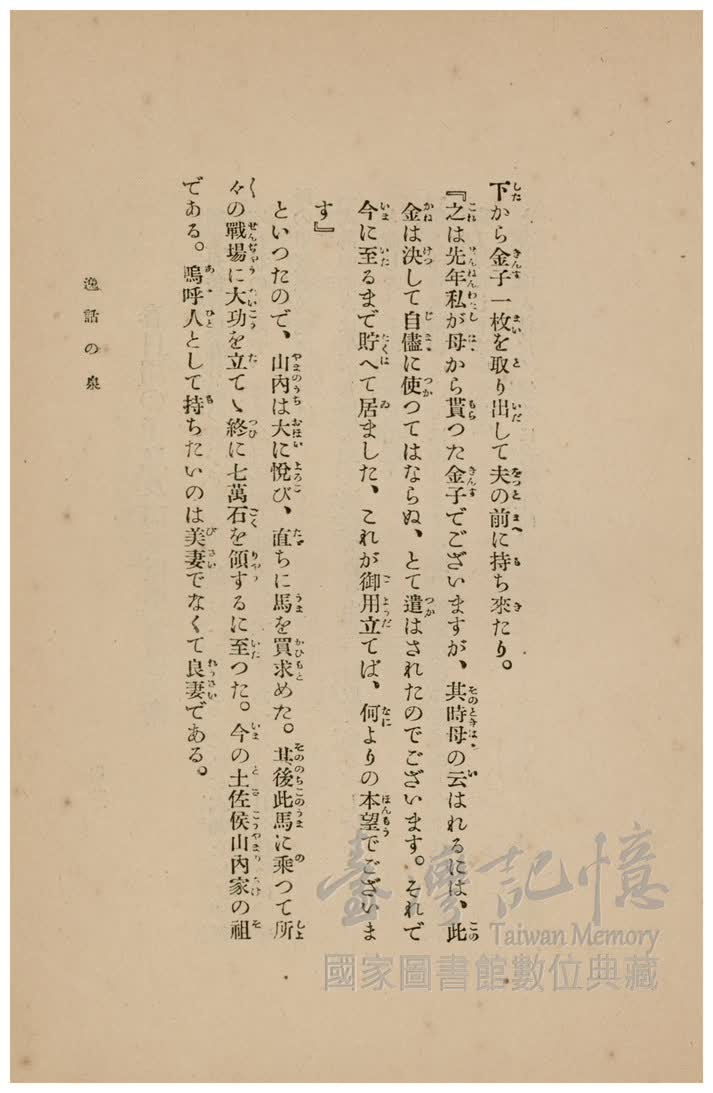 下から金子一枚を取り出して夫の前に持ち來たり。
『之は先年私が母から貰つた金子でございますが、其時母の云はれるには、此
金は決して自儘に使つてはならぬ、とて遣はされたのでございます。それで
今に至るまで貯へて居ました、これが御用立てば、何よりの本望でございま
す』
といつたので、山内は大に悅び、直ちに馬を買求めた。其後此馬に乘つて所
々の戰場に大功を立てゝ終に七萬石を領するに至つた。今の土佐侯山内家の祖
である。嗚呼人として持ちたいのは美妻でなくて良妻である。
逸話の泉
臺灣記憶
Taiwan Memory
國家圖書館數位典藏